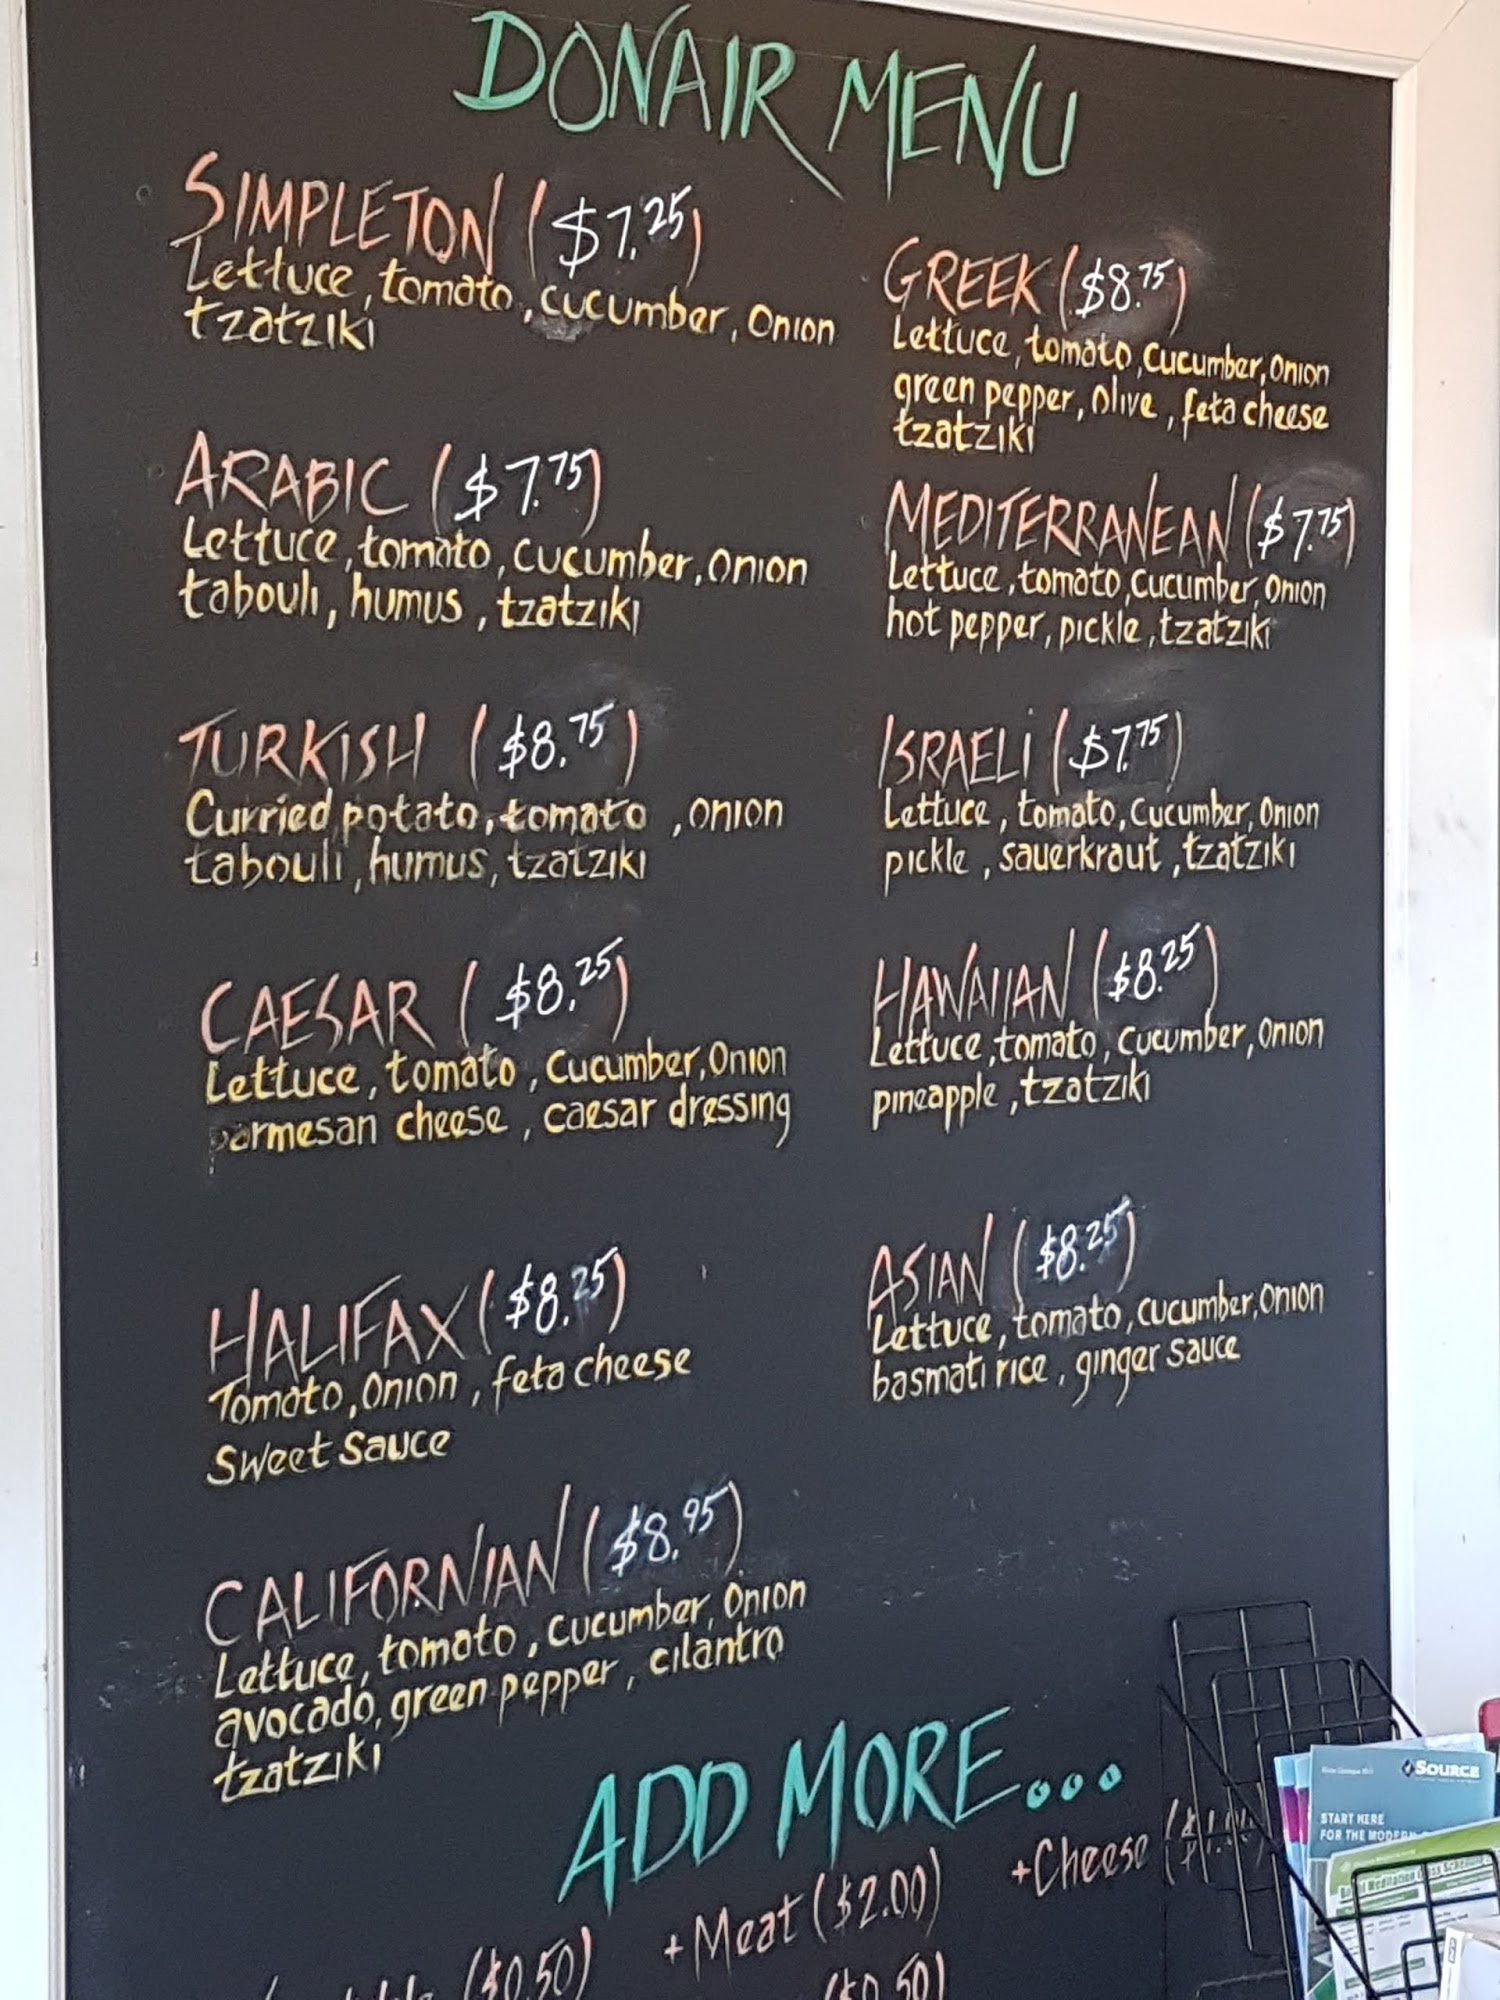 DONAIR MENU
SIMPLETON ($7.25)
Lettuce, tomato, cucumber, Onion
tzatziki
ARABIC ($7.75)
Lettuce, tomato, cucumber, Onion
tabouli, humus, tzatziki
TURKISH ($8.75)
Curried potato, tomato, onion
tabouli, humus, tzatziki
CAESAR ($8.25)
Lettuce, tomato, cucumber, Onion
parmesan cheese, caesar dressing
HALIFAX ($8.25)
Tomato, Onion, feta cheese
Sweet Sauce
CALIFORNIAN ($8.95)
Lettuce, tomato, cucumber, Onion
avocado, green pepper, cilantro
tzatziki
GREEK ($8.75)
Lettuce, tomato, cucumber, Onion
green pepper, olive, feta cheese
tzatziki
MEDITERRANEAN ($7.75)
Lettuce, tomato, cucumber, Onion
hot pepper, pickle, tzatziki
ISRAELI ($7.75)
Lettuce, tomato, cucumber, Onion
pickle, sauerkraut, tzatziki
HAWAIIAN ($8.25)
Lettuce, tomato, cucumber, Onion
pineapple, tzatziki
ASIAN ($8.25)
Lettuce, tomato, cucumber, Onion
basmati rice, ginger sauce
ADD MORE...
+Cheese
+Meat ($2.00)
($0.50)
($0.50)
SOURCE
START HERE
FOR THE MODERN